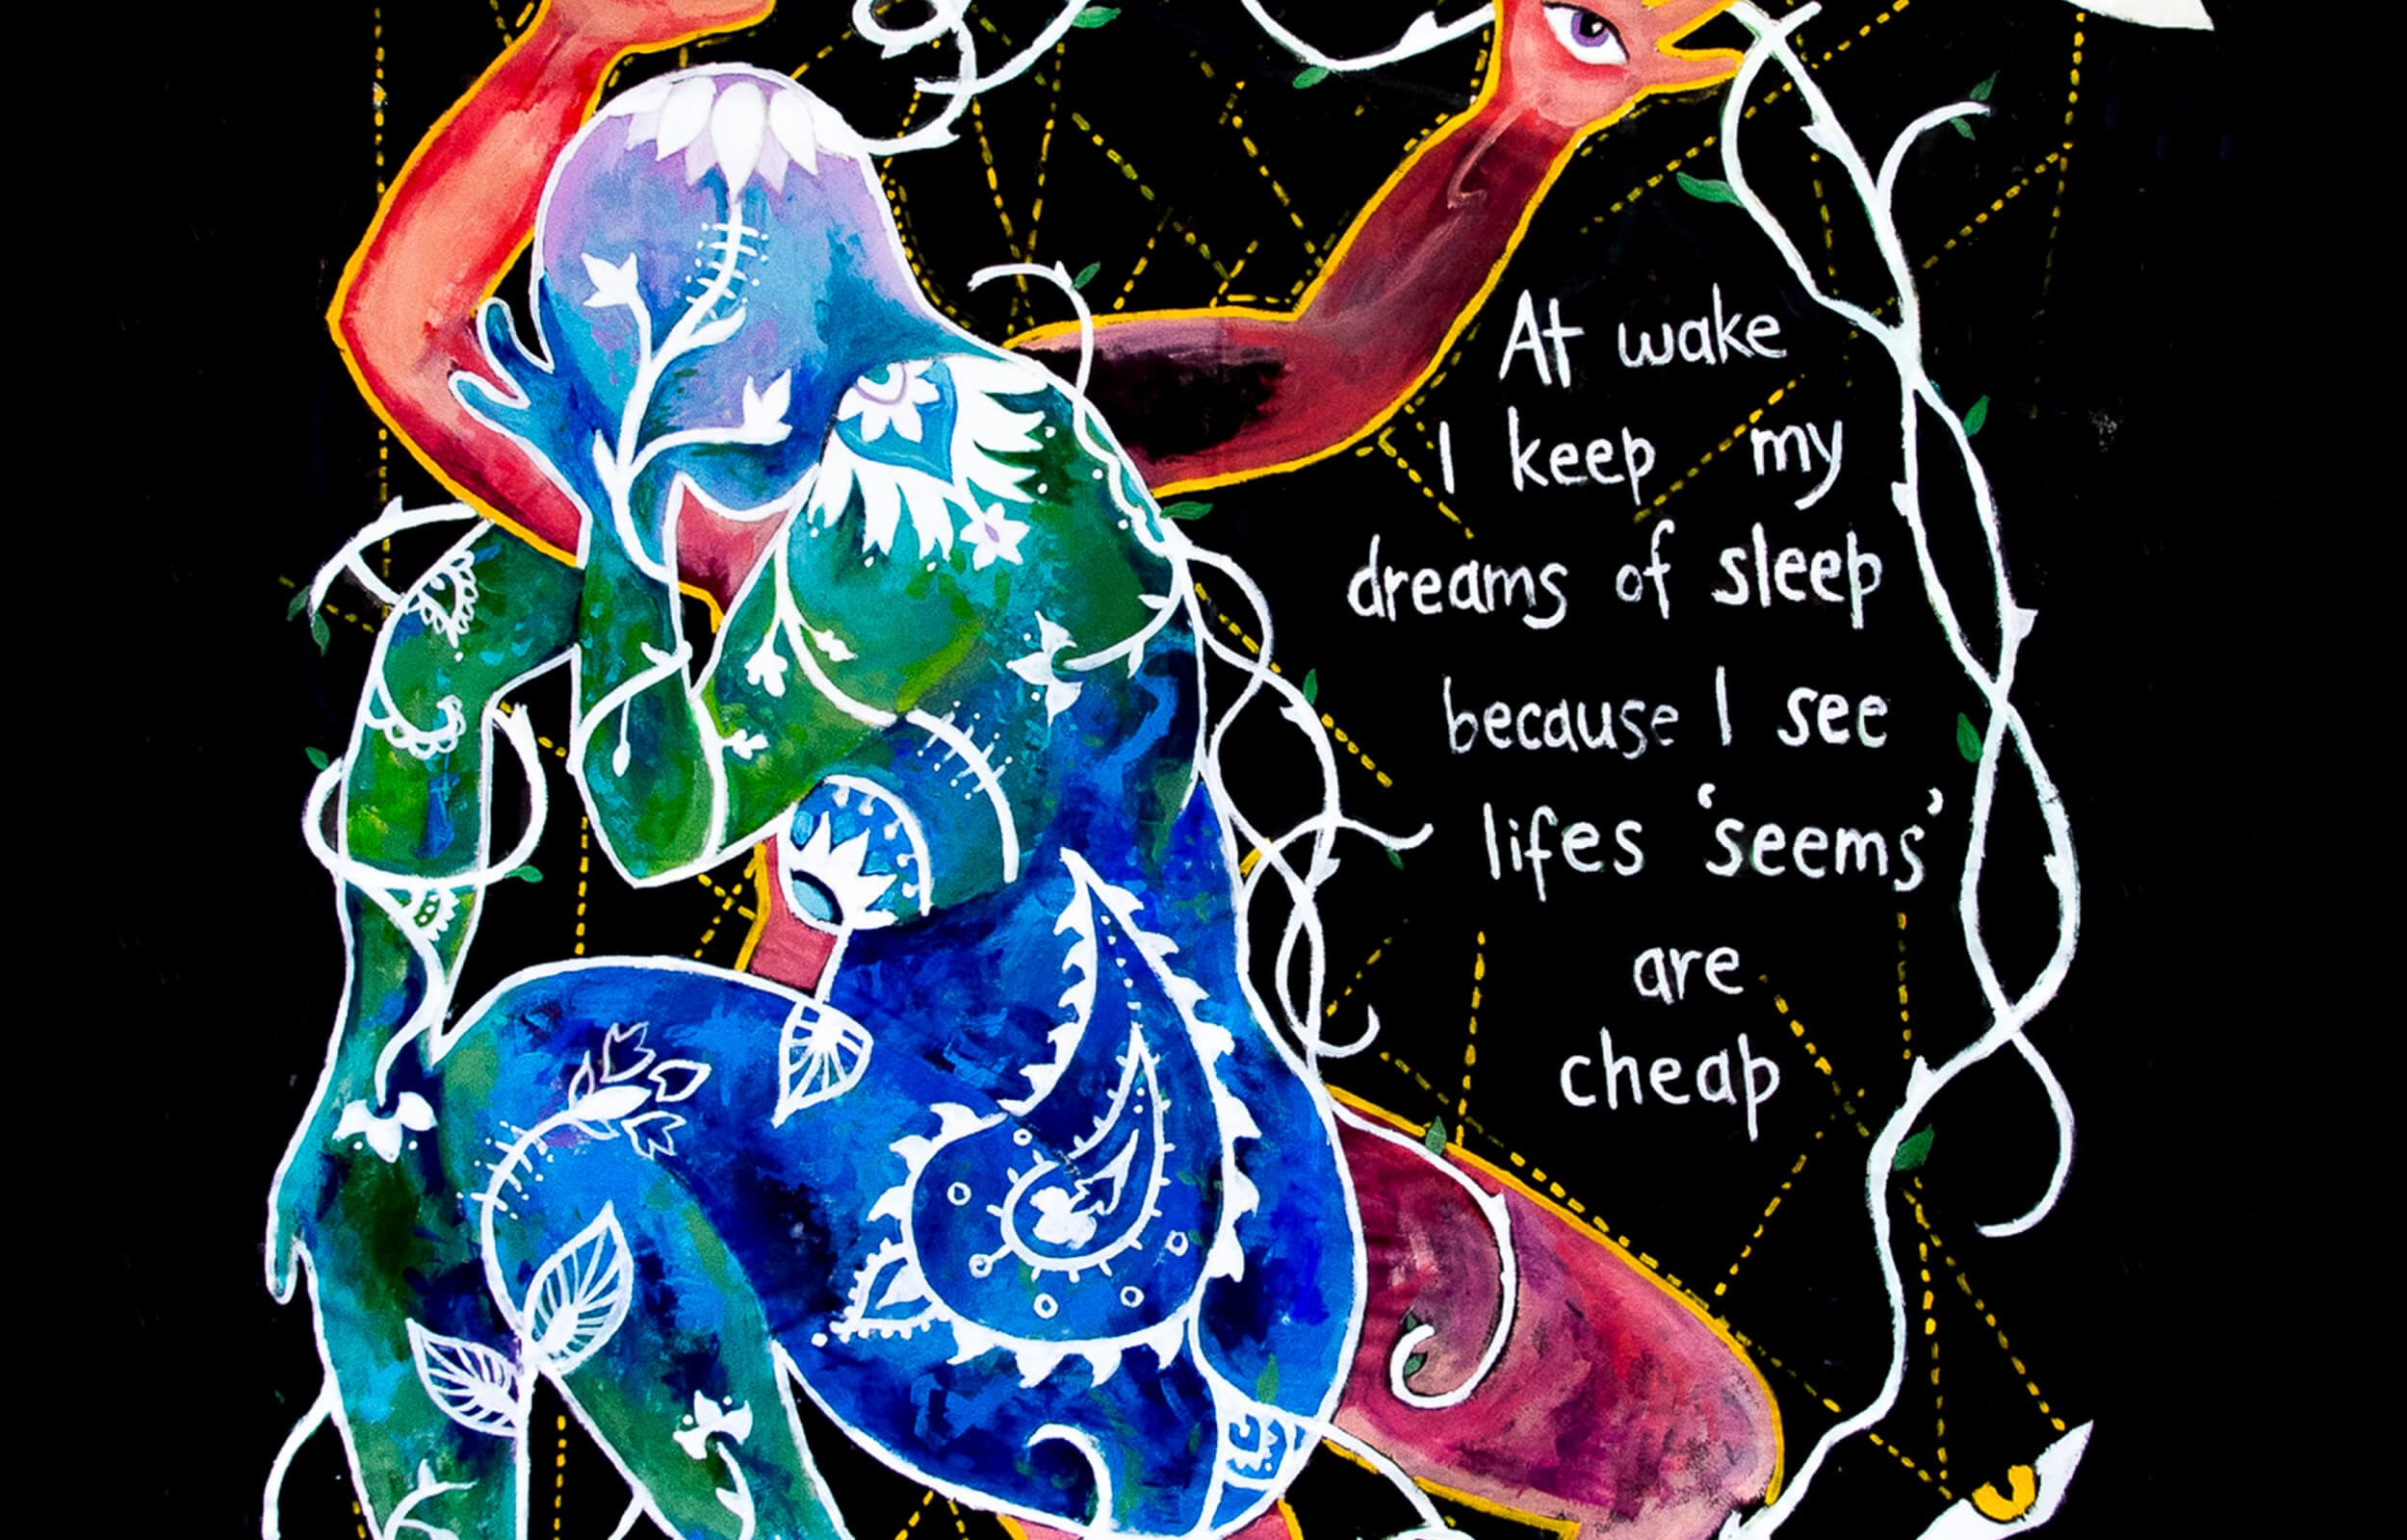 At wake
I keep my
dreams of sleep
because I see
lifes 'seems'
are
cheap